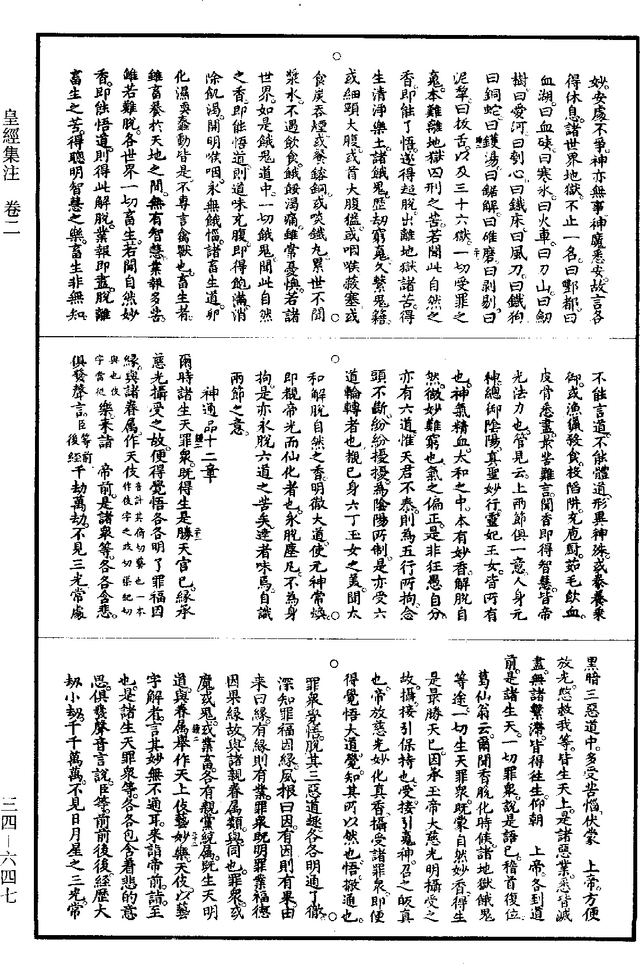 妙安處不爭神亦無事神廣悉安故言各
得休息諸世界地獄不止一名曰酆都曰
血湖曰血硤曰寒氷曰火車曰刀山曰劒
樹曰愛河曰刳心曰鐵床曰風刀曰鐵狗
曰銅蛇曰鑊湯曰鋸解曰碓磨曰剥剔曰
泥犂曰拔舌以及三十六獄一切受罪之
䰟本難離地獄囚刑之苦若聞此自然之
香即能了悟遂得超脫出離地獄諸苦得
生清淨樂土諸餓鬼歷劫窮䰟久繫鬼籍
或細頸大腹或首大腹猛或咽喉蔽塞或
食炭吞煙或飱鎔銅或啖鐵丸累世不聞
漿水不遇飲食餓餒渴痛雖常憂惱若諸
世界如是餓鬼道中一切餓鬼聞此自然
之香即能悟道則道味充腹即得飽滿消
除飢渴開明喉咽永無餓惱諸畜生道卵
化濕蠢動皆是不專言禽獸也畜生者
雖畜養於天地之間無有智慧業報多苦
雖若難脫各世界一切畜生若聞自然妙
香即能悟道則得此解脫業報即盡脫離
畜生之苦得聰明智慧之樂畜生非無知
不能言道不能體道形異神殊或豢養乘
御或漁獵發食投陷阱充庖廚茹毛飲血
皮骨悉盡最苦難言聞香即得智慧皆帝
光法力也管見云上兩節俱一意人身元
神總御陰陽真聖妙行靈妃玉女皆所有
也神氣精血太和之中本有妙香解脫自
然微妙難窮也氣之偏正是非狂愚自分
亦有六道惟天君不泰則爲五行所拘念
頭不斷紛紛擾擾爲陰陽所制是亦受六
道輪轉者也觀已身六丁玉女之美聞太
和解脫自然之香明徹大道使元神常煥
即覩帝光而仙化者也永脫塵凡不爲身
拘是亦永脫六道之苦矣達者味焉自識
兩節之意
神通品十二章
爾時諸生天罪衆既得生是勝天宮已緣承
慈光攝受之故便得覺悟各各明了罪福因
緣與諸眷屬作天伎
樂來詣 帝前是諸衆等各各含悲
俱發聲言臣等前後經千劫萬劫不見三光常處
黑暗三惡道中多受苦惱伏蒙 上帝方便
放光慜救我等皆生天上是諸惡業悉皆滅
盡無諸繫滯皆得往生仰朝 上帝各到道
前是諸生天一切罪衆說是語已稽首復位
葛仙翁云爾聞香脫化時候諸地獄餓鬼
等途一切生天罪衆既蒙自然妙香得生
是最勝天已因承玉帝大慈光明攝受之
故攝接引保持也受接引䰟神召之皈真
也帝放慈光妙化真香攝受諸罪衆即便
得覺悟大道覺知其所以然也悟徹通也
罪衆覺悟脫其三惡道趣各各明通了徹
深知罪福因緣夙根曰因有因則有果由
來曰緣有緣則有業罪衆既明罪業福德
因果緣故與諸親眷屬類與同也罪衆或
魔或鬼或業畜各有親黨統屬既生天明
道與眷屬舉作天上伎藝妙樂天伎以藝
字解者言其妙無不通耳來詣帝前詣至
也是諸生天罪衆等各各包含着悲的意
思俱發聲音言說臣等前前後後經歷大
劫小劫千千萬萬不見日月星之三光常
皇經集注 卷二
三四—六四七